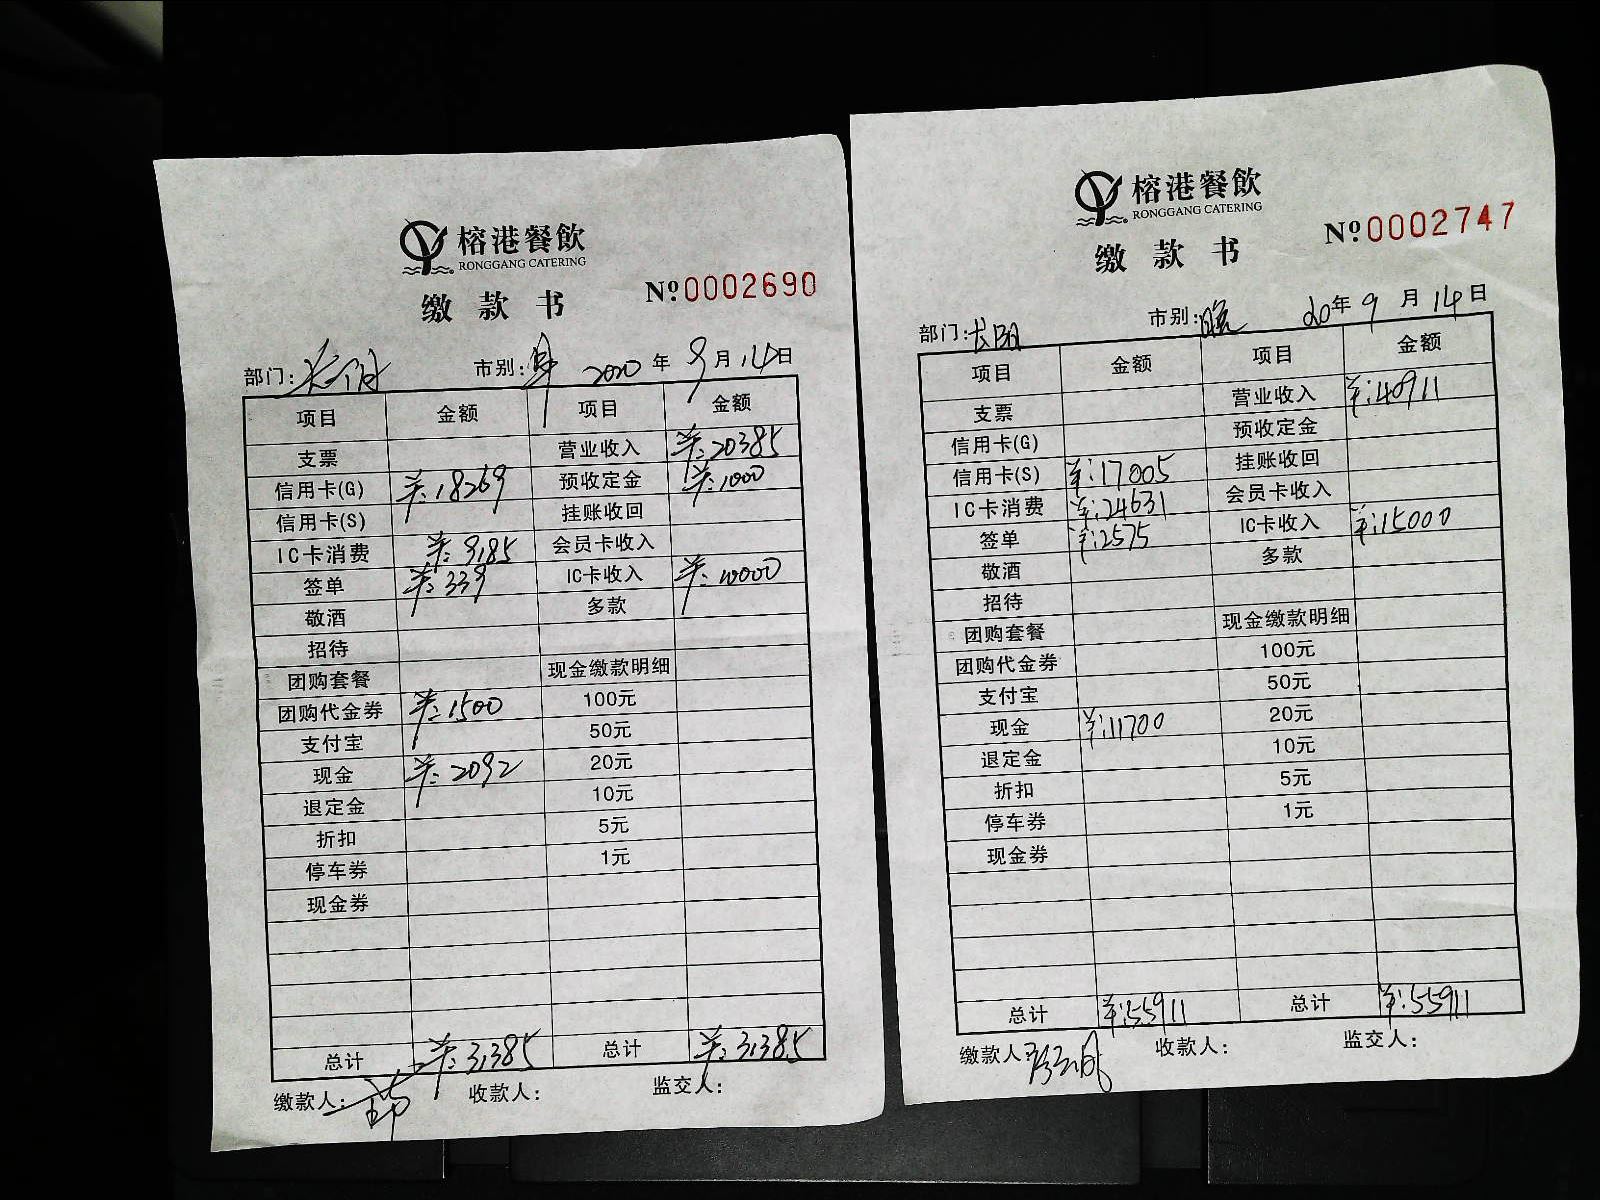 榕港餐飲
RONGGANG CATERING
缴款书
№0002690
部门: 市别:早 2020年9月14日
项目 金额 项目 金额
支票 营业收入 ¥:20385
信用卡(G) ¥:18269 预收定金 ¥:1000
信用卡(S) 挂账收回
IC卡消费 ¥:9185 会员卡收入
签单 ¥:339 IC卡收入 ¥:10000
敬酒 多款
招待
团购套餐 现金缴款明细
团购代金券 ¥:1500 100元
支付宝 50元
现金 ¥:2092 20元
退定金 10元
折扣 5元
停车券 1元
现金券
总计 ¥:31385 总计 ¥:31385
缴款人: 收款人: 监交人:
榕港餐飲
RONGGANG CATERING
缴款书
№0002747
部门: 市别:晚 20年9月14日
项目 金额 项目 金额
支票 营业收入 ¥:40911
信用卡(G) 预收定金
信用卡(S) ¥:17005 挂账收回
IC卡消费 ¥:24631 会员卡收入
签单 ¥:2575 IC卡收入 ¥:15000
敬酒 多款
招待
团购套餐 现金缴款明细
团购代金券 100元
支付宝 50元
现金 ¥:11700 20元
退定金 10元
折扣 5元
停车券 1元
现金券
总计 ¥:55911 总计 ¥:55911
缴款人: 收款人: 监交人: